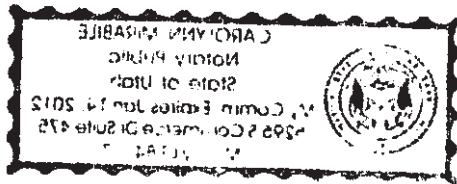 CAROLYNN MIRABILE
Notary Public
State of Utah
My Comm. Expires Jan 14, 2012
5295 S Commerce Dr Suite 475